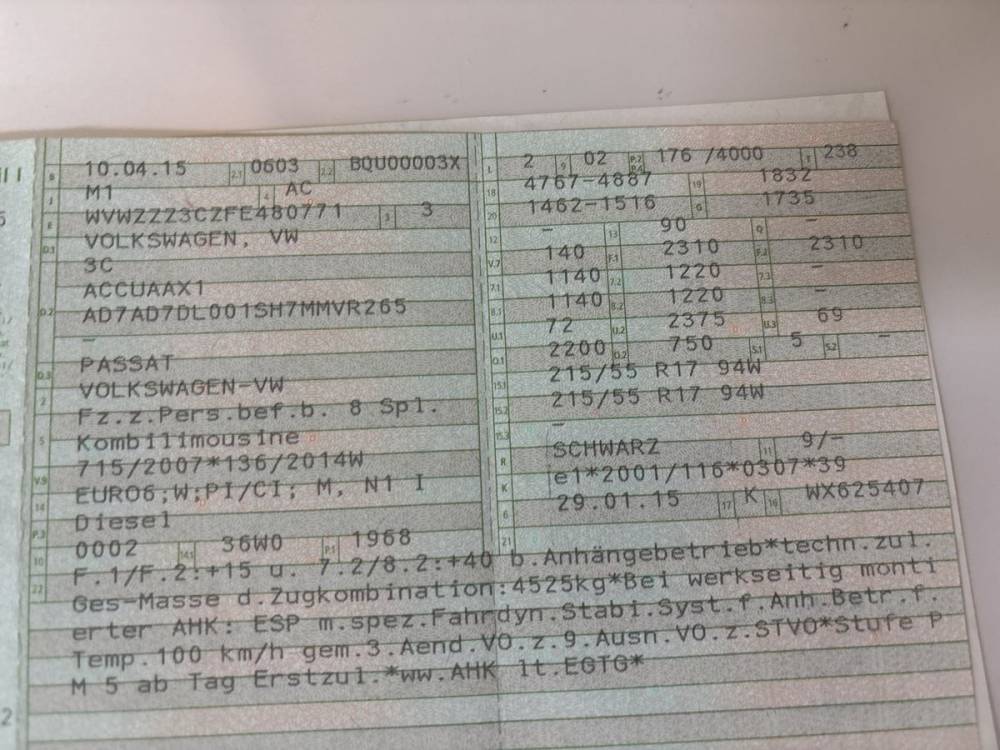 B 10.04.15 2.1 0603 2.2 BQU00003X
J M1 4 AC
E WVWZZZ3CZFE480771 3 3
D.1 VOLKSWAGEN, VW
3C
D.2 ACCUAAX1
AD7AD7DL001SH7MMVR265
–
D.3 PASSAT
2 VOLKSWAGEN-VW
5 Fz.z.Pers.bef.b. 8 Spl.
Kombilimousine
V.9 715/2007*136/2014W
14 EURO6;W;PI/CI; M, N1 I
P.3 Diesel
10 0002 14.1 36W0 P.1 1968
L 2 9 02 P.2 P.4 176 /4000 T 238
18 4767-4887 19 1832
20 1462-1516 G 1735
12 – 13 90 Q –
V.7 140 F.1 2310 F.2 2310
7.1 1140 7.2 1220 7.3 –
8.1 1140 8.2 1220 8.3 –
U.1 72 U.2 2375 U.3 69
O.1 2200 O.2 750 S.1 5 S.2 –
15.1 215/55 R17 94W
15.2 215/55 R17 94W
15.3 –
R SCHWARZ 11 9/-
K e1*2001/116*0307*39
6 29.01.15 17 K 16 WX625407
21
22 F.1/F.2:+15 u. 7.2/8.2:+40 b.Anhängebetrieb*techn.zul.
Ges-Masse d.Zugkombination:4525kg*Bei werkseitig monti
erter AHK: ESP m.spez.Fahrdyn.Stabi.Syst.f.Anh.Betr.f.
Temp.100 km/h gem.3.Aend.VO.z.9.Ausn.VO.z.STVO*Stufe P
M 5 ab Tag Erstzul.*ww.AHK lt.EGTG*